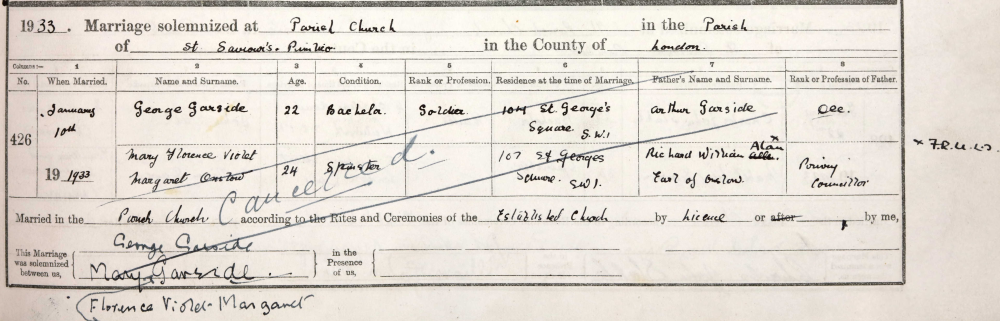 1933. Marriage solemnized at Parish Church in the Parish
of St Saviour's. Pimlico in the County of London.
Columns:— 1 2 3 4 5 6 7 8
No. When Married. Name and Surname. Age. Condition. Rank or Profession. Residence at the time of Marriage. Father's Name and Surname. Rank or Profession of Father.
426 January 10th 1933 George Garside 22 Bachelor. Soldier 104 St. George's Square S.W.1 Arthur Garside
Mary Florence Violet Margaret Onslow 24 Spinster 107 St Georges Square. S.W.1. Richard William Alan Earl of Onslow. Privy Councillor
Cancelled.
Married in the Parish Church according to the Rites and Ceremonies of the Established Church by Licence or after by me,
This Marriage was solemnized between us,
George Garside
Mary Garside.
in the Presence of us,
Florence Violet Margaret